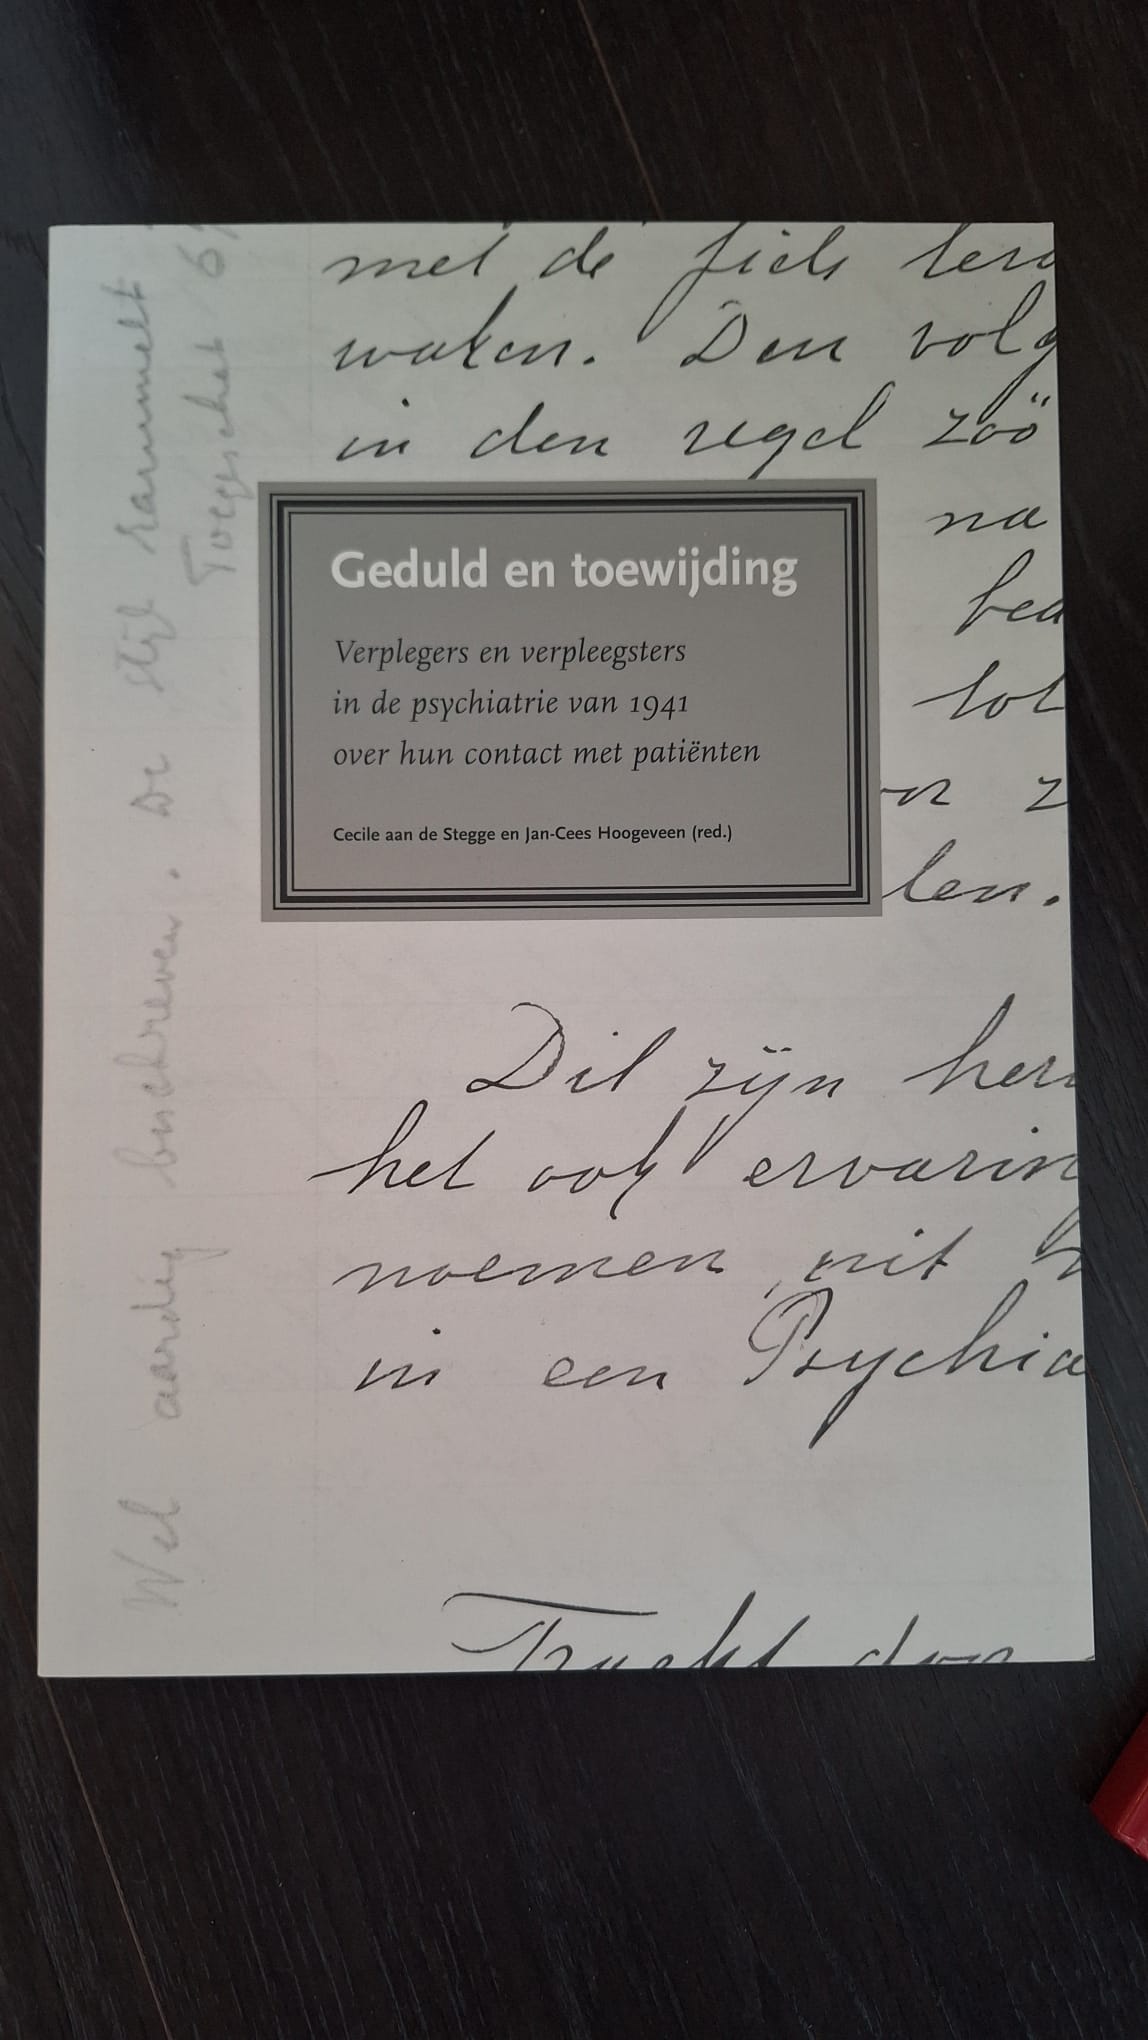 met de fiets
waken. Den volg
in den regel zoö
na
bea
tot
len.
Geduld en toewijding
Verplegers en verpleegsters
in de psychiatrie van 1941
over hun contact met patiënten
Cecile aan de Stegge en Jan-Cees Hoogeveen (red.)
Dit zijn her
het ook ervarin
noemen, uit
in een Psychia
Tracht door
Wel aardig beschreven. De stijl rammelt
Toegeschat 6